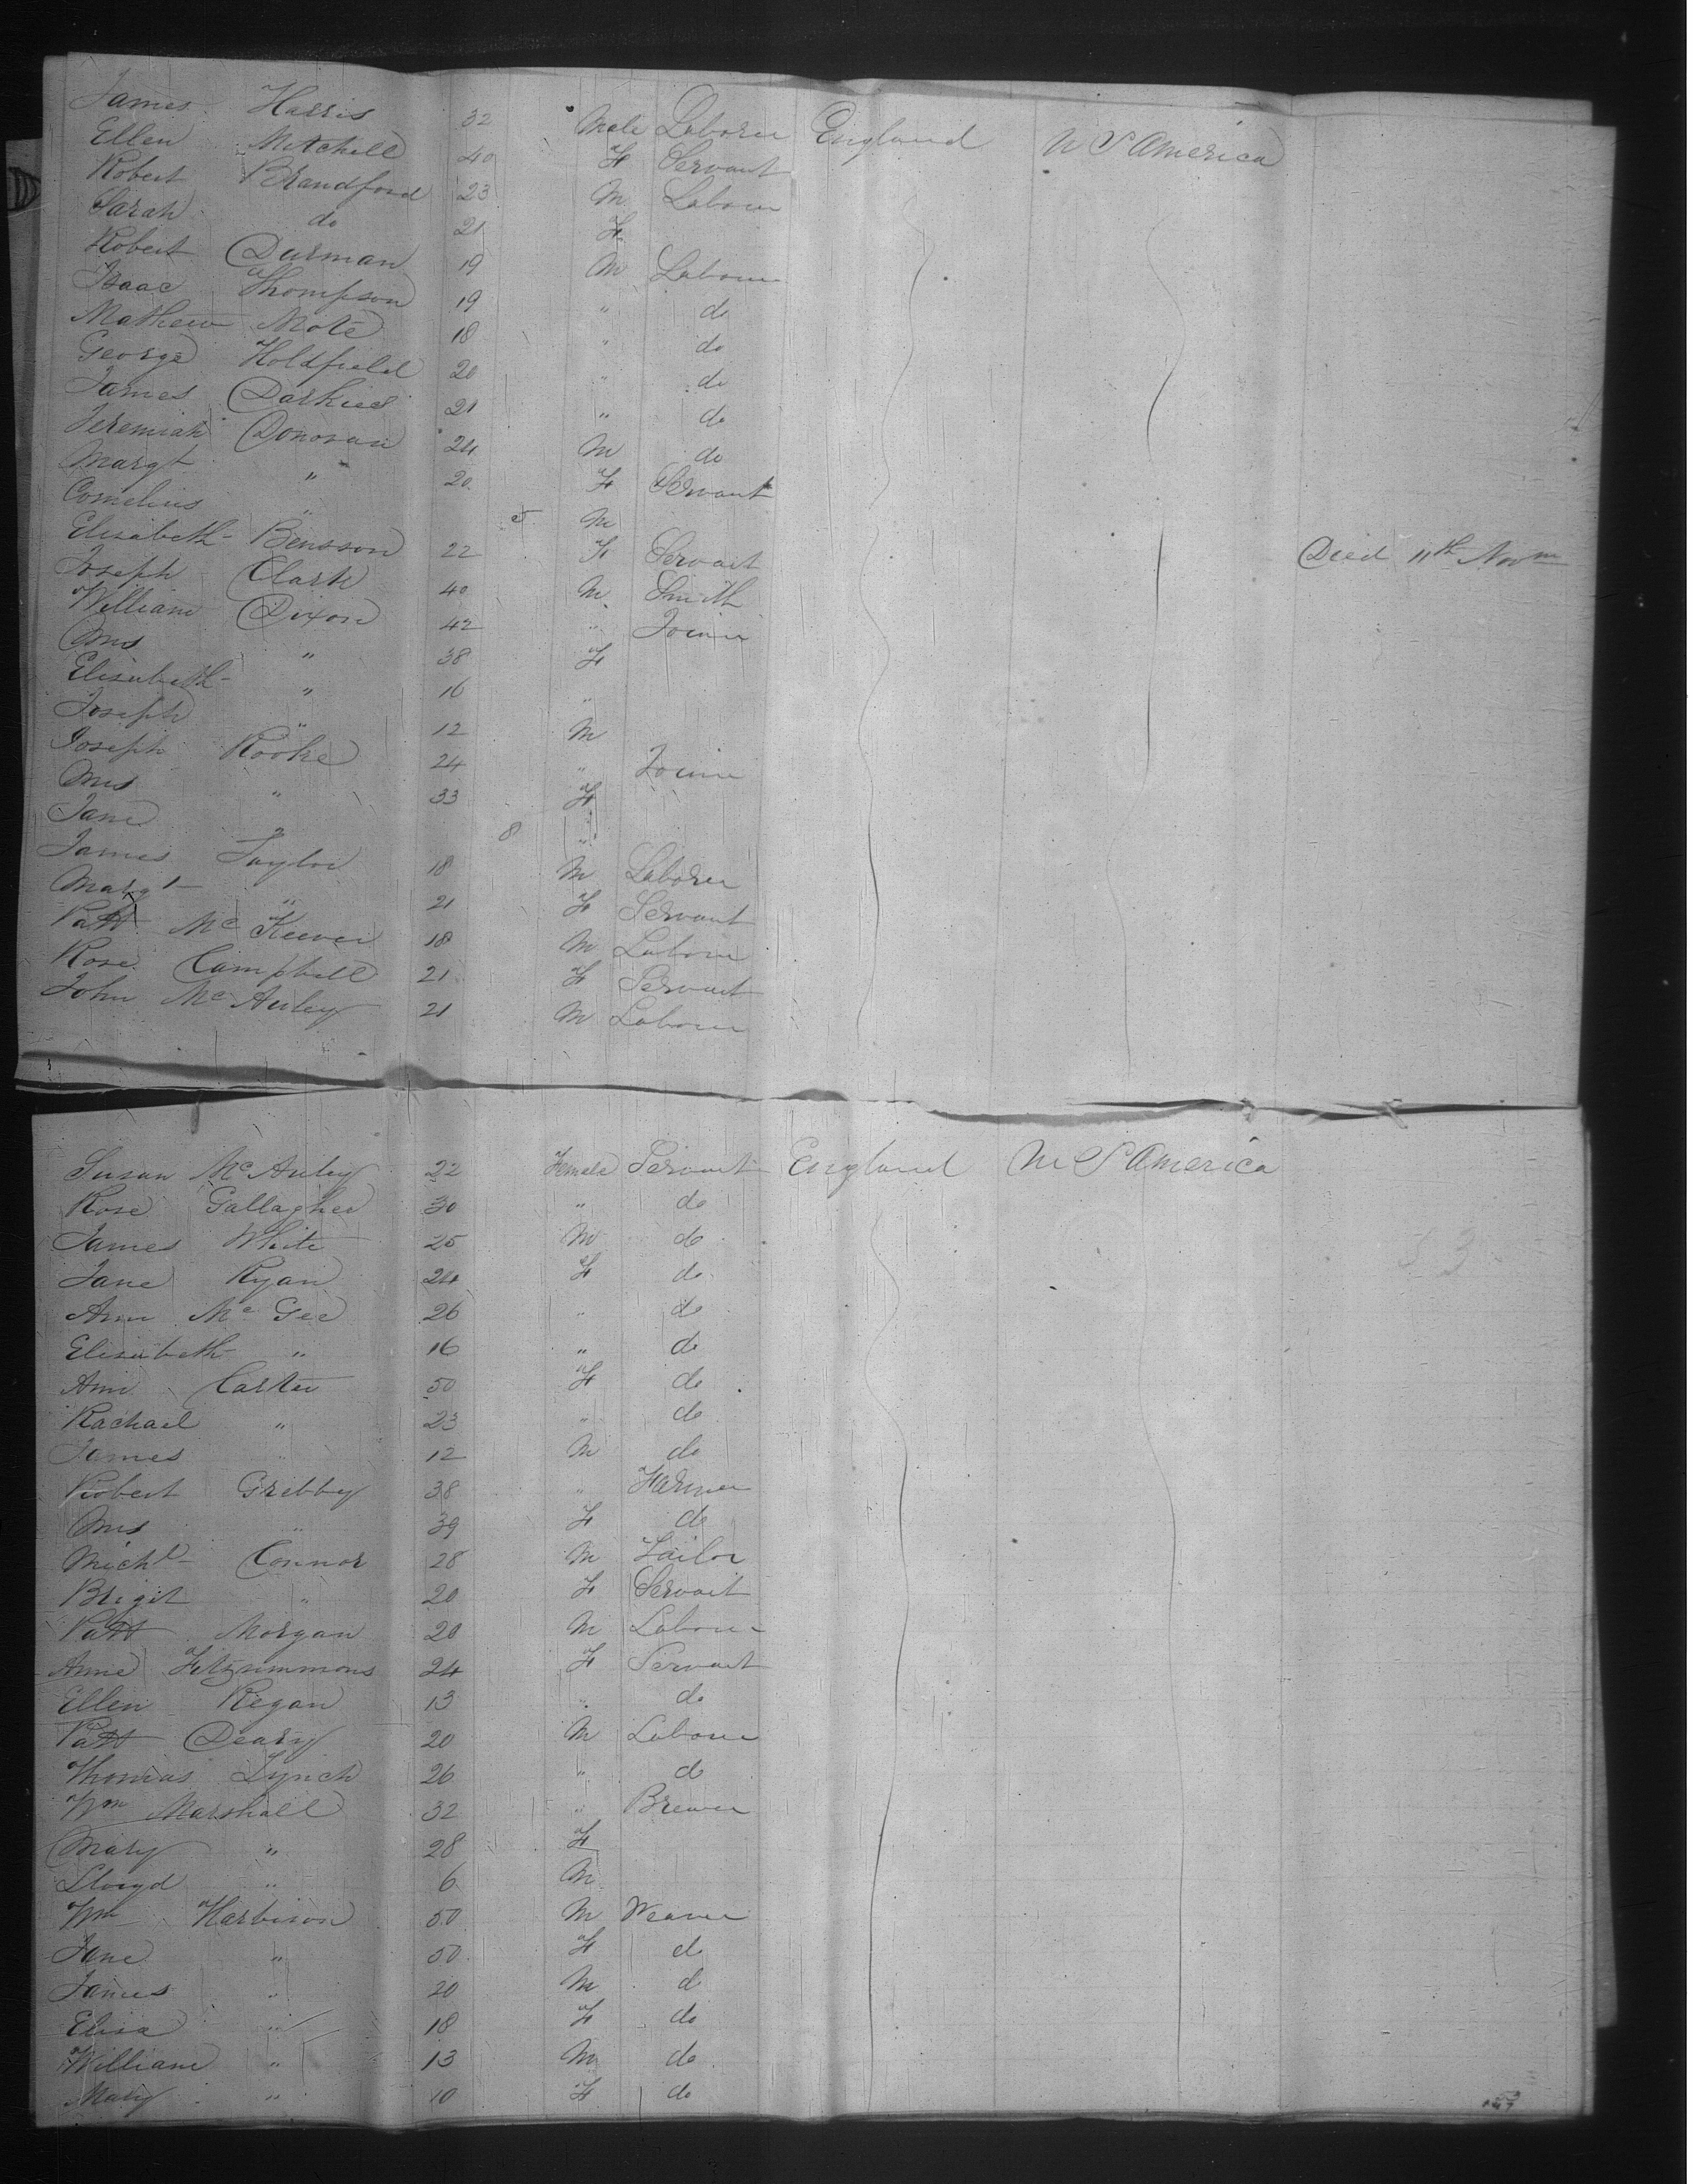 James Harris 32 Male Laborer England U S America
Ellen Mitchell 40 F Servant
Robert Brandford 23 M Labour
Sarah do 21 F
Robert Durman 19 M Labour
Isaac Thompson 19 " do
Mathew Mote 18 " do
George Holdfield 20 " do
James Darkies 21 " do
Jeremiah Donovan 24 M do
Margt " 20 F Servant
Cornelius " 5 M
Elisabeth Bensson 22 F Servant Died 11th Novm
Joseph Clark 40 M Smith
William Dixon 42 " Joiner
Mrs " 38 F
Elisabeth " 16 "
Joseph " 12 M
Joseph Rooke 24 " Joiner
Mrs " 33 F
Jane " 8 "
James Taylor 18 M Laborer
Margt " 21 F Servant
Patt McKeever 18 M Labour
Rose Campbell 21 F Servant
John McAuley 21 M Labour
Susan McAuley 22 Female Servant England U S America
Rose Gallagher 30 " do
James White 25 M do
Jane Ryan 24 F do
Ann McGee 26 " do
Elisabeth " 16 " do
Ann Carter 50 F do
Rachael " 23 " do
James " 12 M do
Robert Gribby 38 " Farmer
Mrs " 39 F do
Michl Connor 28 M Tailor
Brigit " 20 F Servant
Patt Morgan 20 M Labour
Anne Fitzsimmons 24 F Servant
Ellen Regan 13 " do
Patt Deary 20 M Labour
Thomas Lynch 26 " do
Wm Marshall 32 " Brewer
Mary " 28 F
Lloyd " 6 M
Wm Harbison 50 M Weaver
Jane " 50 F do
James " 20 M do
Elisa " 18 F do
William " 13 M do
Mary " 10 F do